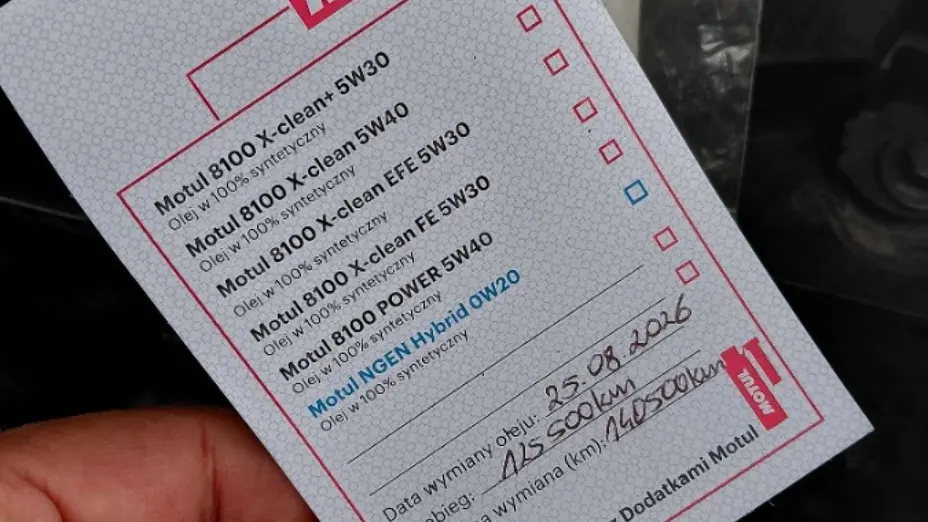 Motul 8100 X-clean+ 5W30
Olej w 100% syntetyczny
Motul 8100 X-clean 5W40
Olej w 100% syntetyczny
Motul 8100 X-clean EFE 5W30
Olej w 100% syntetyczny
Motul 8100 X-clean FE 5W30
Olej w 100% syntetyczny
Motul 8100 POWER 5W40
Olej w 100% syntetyczny
Motul NGEN Hybrid 0W20
Olej w 100% syntetyczny
Data wymiany oleju: 25.08.2026
ebieg: 125 500km
a wymiana (km): 140500km
z Dodatkami Motul
MOTUL